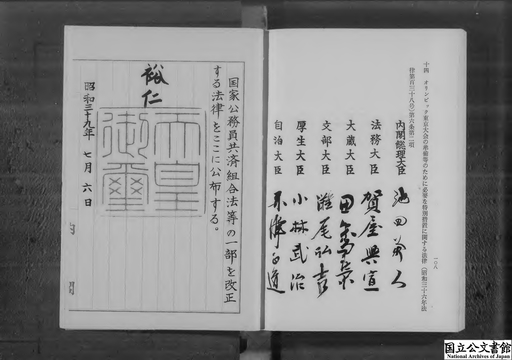 十四　オリンピック東京大会の準備等のために必要な特別措置に関する法律(昭和三十六年法
律第百三十八号)第六条第二項
一〇八
内閣総理大臣　池田勇人
法務大臣　賀屋興宣
大蔵大臣　田中角榮
文部大臣　灘尾弘吉
厚生大臣　小林武治
自治大臣　赤澤正道
国家公務員共済組合法等の一部を改正
する法律をここに公布する。
裕仁
天皇御璽
昭和三十九年　七月　六日
国立公文書館
National Archives of Japan